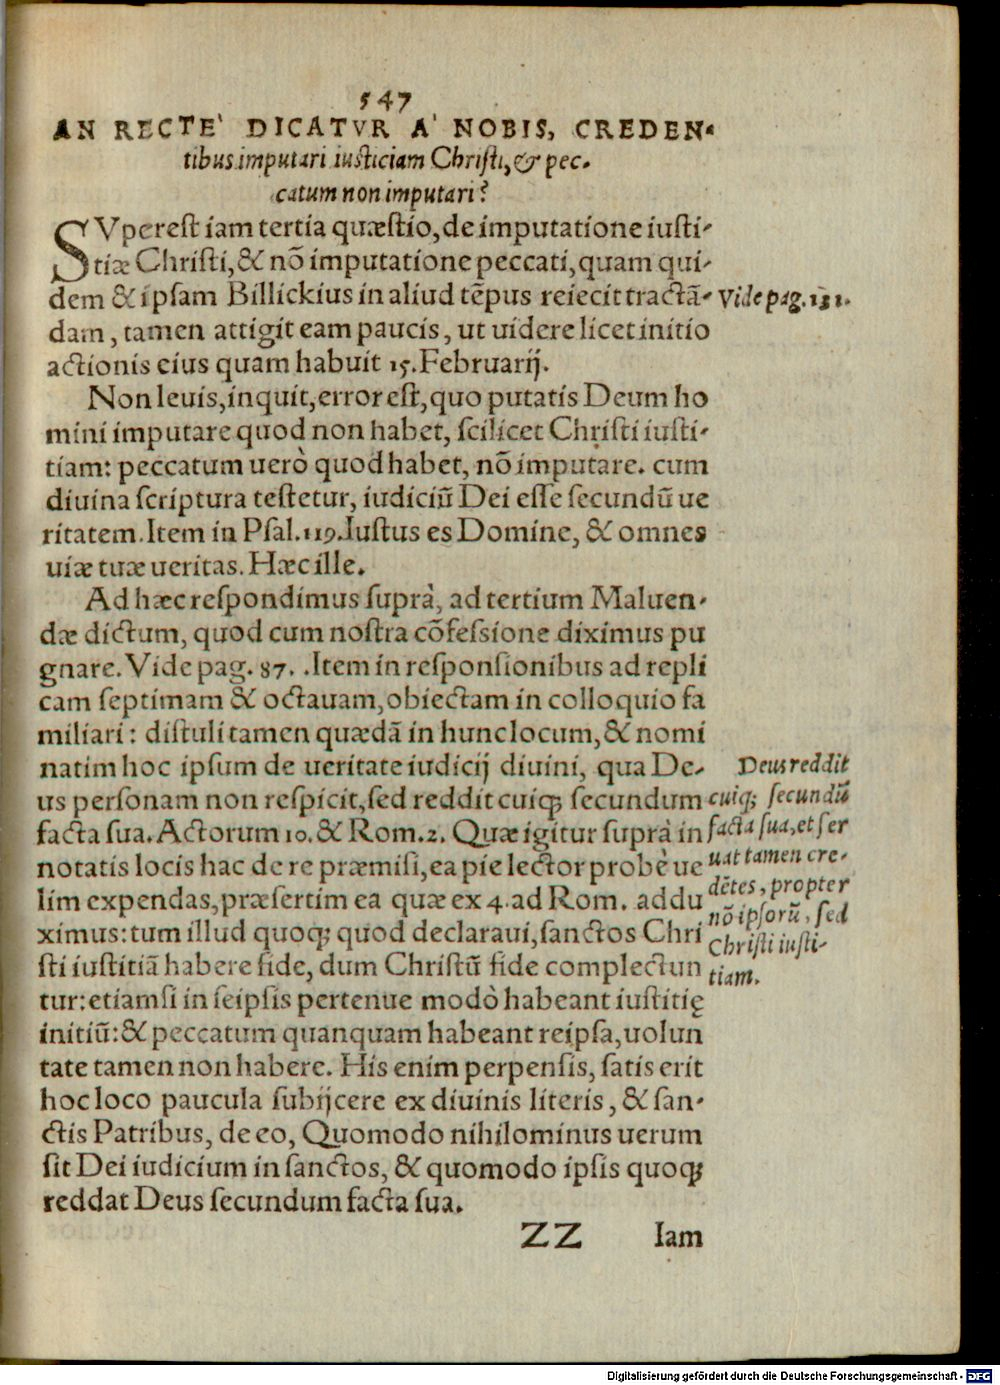 547
AN RECTE' DICATVR A' NOBIS, CREDEN-
tibus imputari iusticiam Christi, & pec-
catum non imputari?
SVperest iam tertia quæstio, de imputatione iusti-
tiæ Christi, & nõ imputatione peccati, quam qui-
dem & ipsam Billickius in aliud tẽpus reiecit tractã-
Vide pag. 131.
dam, tamen attigit eam paucis, ut uidere licet initio
actionis eius quam habuit 15. Februarij.
Non leuis, inquit, error est, quo putatis Deum ho
mini imputare quod non habet, scilicet Christi iusti-
tiam: peccatum uerò quod habet, nõ imputare. cum
diuina scriptura testetur, iudiciũ Dei esse secundũ ue
ritatem. Item in Psal. 119. Iustus es Domine, & omnes
uiæ tuæ ueritas. Hæc ille.
Ad hæc respondimus suprà, ad tertium Maluen-
dæ dictum, quod cum nostra cõfessione diximus pu
gnare. Vide pag. 87. . Item in responsionibus ad repli
cam septimam & octauam, obiectam in colloquio fa
miliari: distuli tamen quædã in hunc locum, & nomi
natim hoc ipsum de ueritate iudicij diuini, qua De-
us personam non respicit, sed reddit cuiq; secundum
facta sua. Actorum 10. & Rom. 2. Quæ igitur suprà in
notatis locis hac de re præmisi, ea pie lector probè ue
lim expendas, præsertim ea quæ ex 4. ad Rom. addu
ximus: tum illud quoq; quod declaraui, sanctos Chri
sti iustitiã habere fide, dum Christũ fide complectun
tur: etiamsi in seipsis pertenue modò habeant iustitię
initiũ: & peccatum quanquam habeant reipsa, uolun
tate tamen non habere. His enim perpensis, satis erit
hoc loco paucula subijcere ex diuinis literis, & san-
ctis Patribus, de eo, Quomodo nihilominus uerum
sit Dei iudicium in sanctos, & quomodo ipsis quoq;
reddat Deus secundum facta sua.
Deus reddit
cuiq; secundũ
facta sua, et ser
uat tamen cre-
dẽtes, propter
nõ ipsorũ, sed
Christi iusti-
tiam.
ZZ Iam
Digitalisierung gefördert durch die Deutsche Forschungsgemeinschaft - DFG